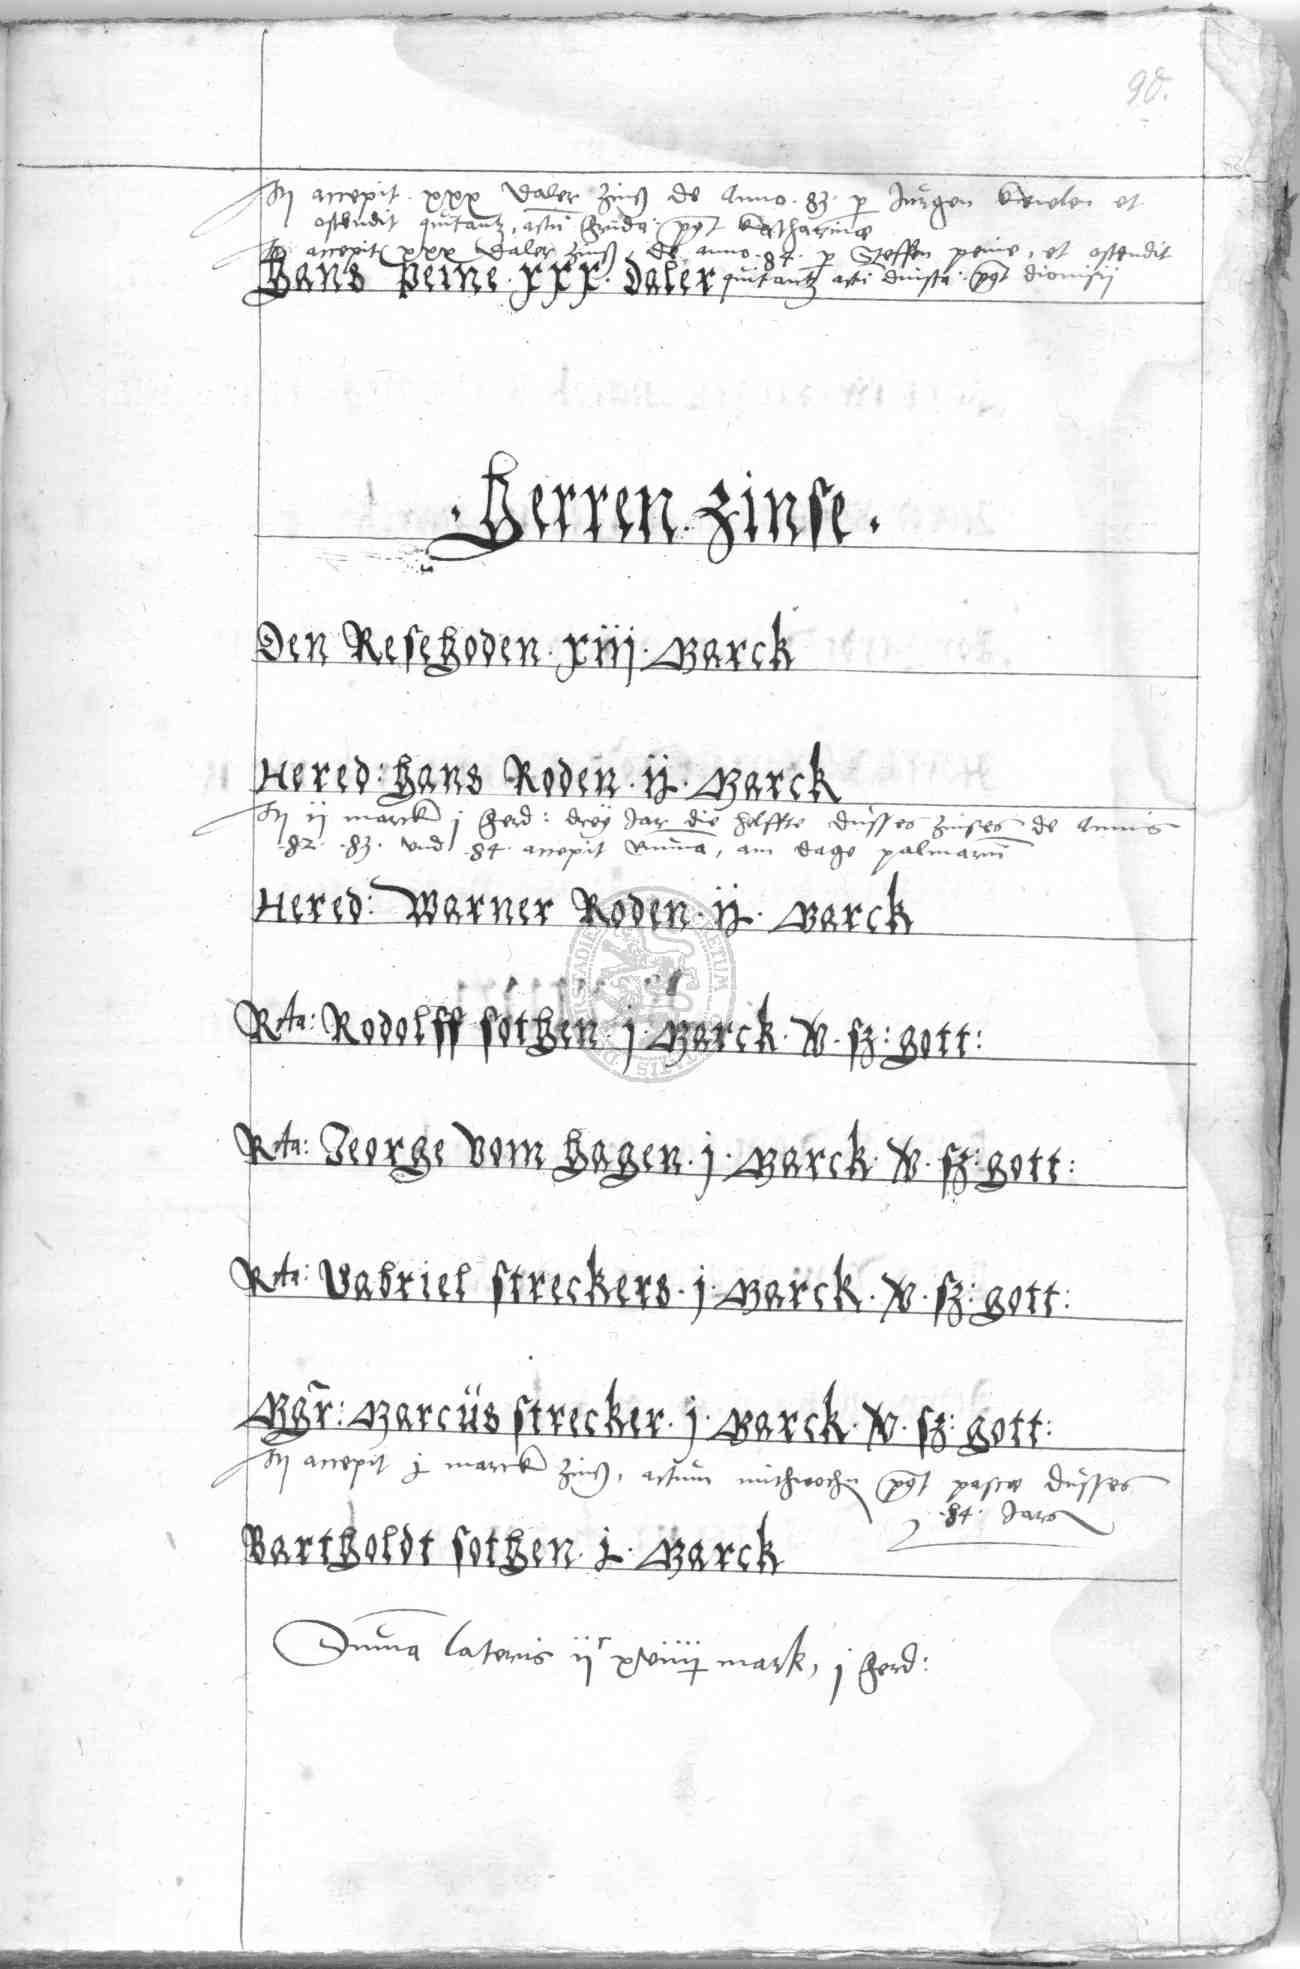 90.
accepit xxx Daler Zinß de Anno 83 per Jurgen et
ostendit quitantz, actu frida: post Katharinæ
accepit xxx Daler Zinß, de anno 84 per Steffen peine, et ostendit
Hans Peine xxx Daler quitantz acti dinsta: post dionisij
Herren Zinse
Den Resehoden xiij Marck
Hered: Hans Roden ij Marck
ij marck j ferd: drey Jar die helffte dusses Zinses de Annis
82. 83. und 84. accepit am dage palmarum
Hered: Warner Roden ij Marck
Rta: Rodolff sothen j Marck V sz: gott:
Rta: Jeorge vom Hagen j Marck V sz: gott:
Rta: Gabriel streckers j Marck V sz: gott:
Mgr: Marcus strecker j Marck V sz: gott:
accepit j marck Zinß, actum mithwochen post pascæ dusses
84. Jars
Bartholdt sothen Marck
Summa lateris mark, j ferd: